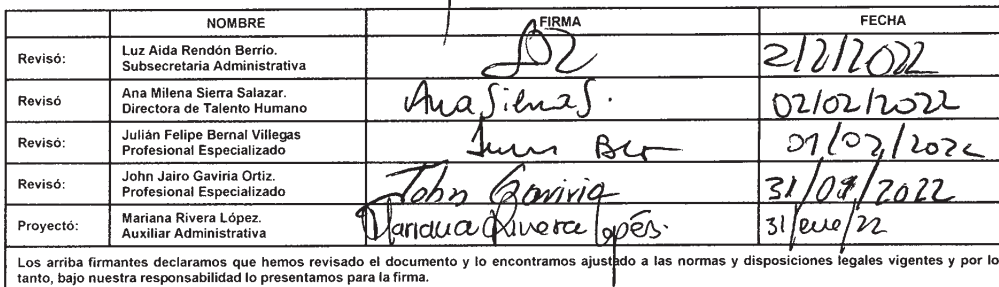 NOMBRE FIRMA FECHA
Revisó: Luz Aida Rendón Berrío.
Subsecretaria Administrativa 2/2/2022
Revisó Ana Milena Sierra Salazar.
Directora de Talento Humano Ana Sierra S. 02/02/2022
Revisó: Julián Felipe Bernal Villegas
Profesional Especializado 01/02/2022
Revisó: John Jairo Gaviria Ortiz.
Profesional Especializado John Gaviria 31/01/2022
Proyectó: Mariana Rivera López.
Auxiliar Administrativa Mariana Rivera López. 31/ene/22
Los arriba firmantes declaramos que hemos revisado el documento y lo encontramos ajustado a las normas y disposiciones legales vigentes y por lo
tanto, bajo nuestra responsabilidad lo presentamos para la firma.